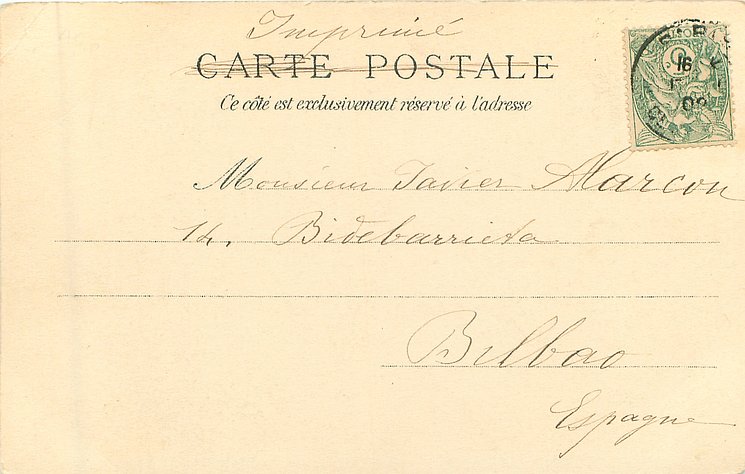 Imprimé
CARTE POSTALE
Ce côté est exclusivement réservé à l'adresse
Monsieur Javier Alarcon
14, Bidebarrieta
Bilbao
Espagne
16